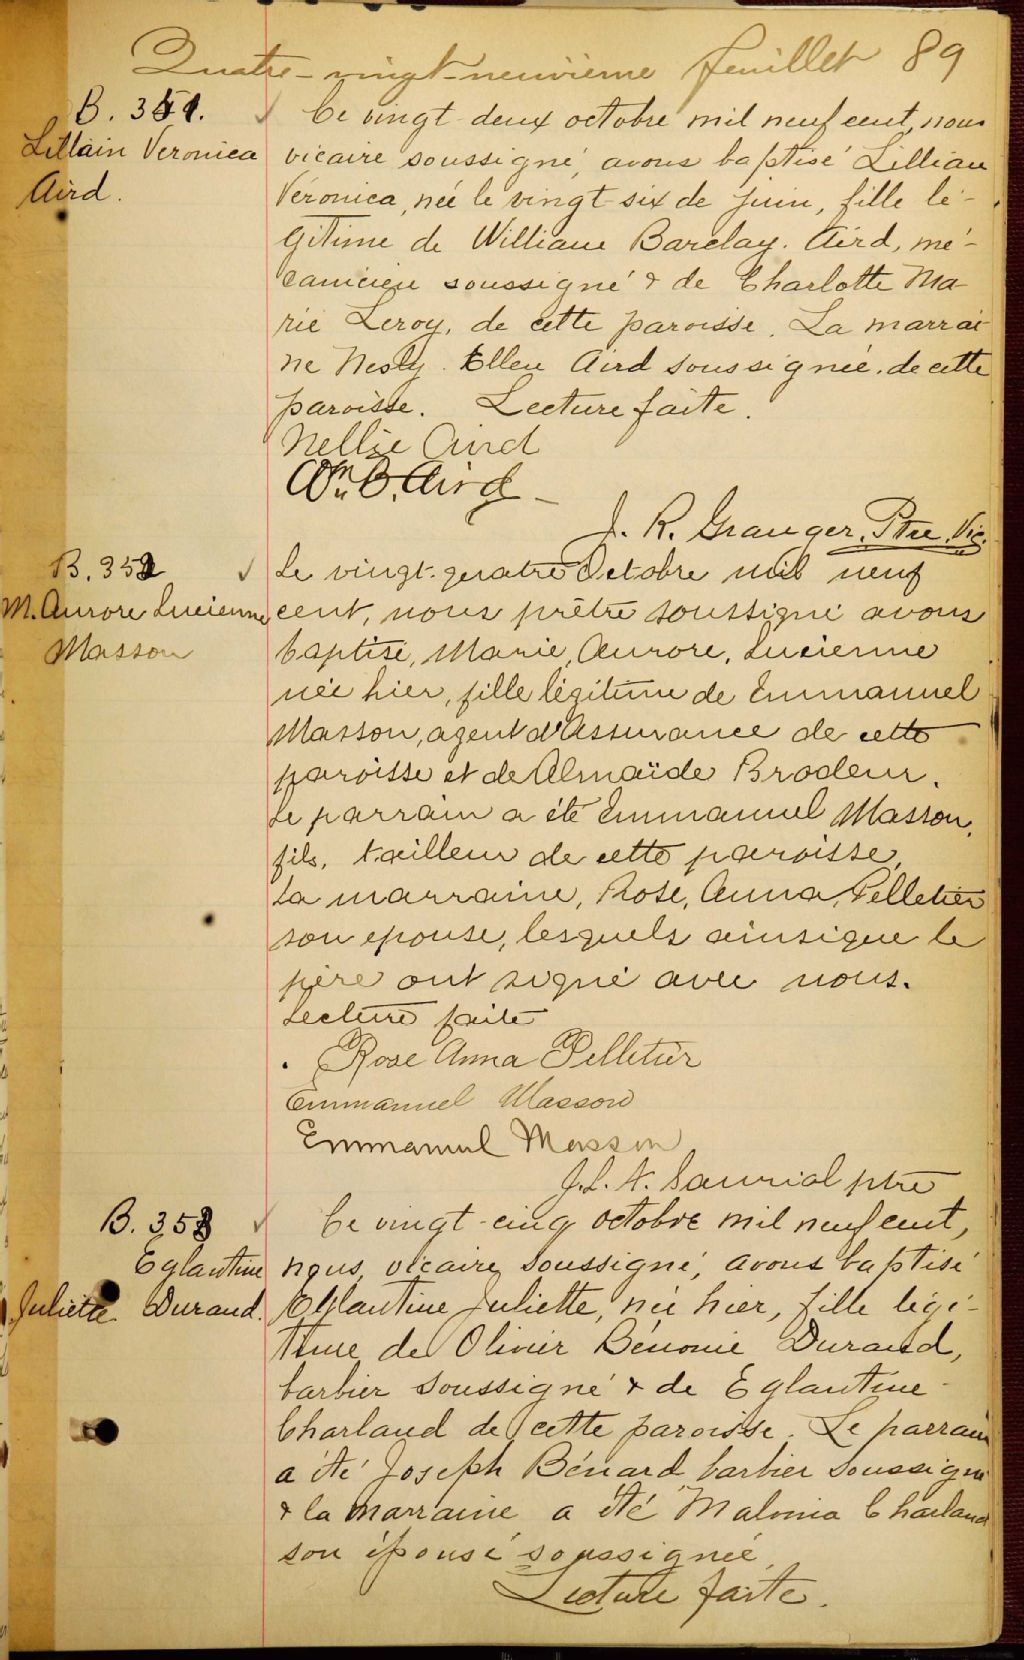 Quatre-vingt-neuvième feuillet 89
B. 351.
Lillain Veronica
Aird.
Ce vingt-deux octobre mil neuf cent, nous
vicaire soussigné, avons baptisé Lillian
Véronica, née le vingt-six de juin, fille lé-
gitime de William Barclay. Aird, mé-
canicien soussigné & de Charlotte Ma-
rie Leroy, de cette paroisse. La marrai-
ne Nesly Ellen Aird soussignée, de cette
paroisse. Lecture faite.
Nellie Aird
Wm B. Aird
J. R. Granger. Ptre. Vic.
B. 352
M. Aurore Lucienne
Masson
Le vingt-quatre Octobre mil neuf
cent, nous prêtre soussigné avons
baptisé, Marie, Aurore, Lucienne
née hier, fille légitime de Emmanuel
Masson, agent d'Assurance de cette
paroisse et de Almaïde Brodeur.
Le parrain a été Emmanuel Masson,
fils, tailleur de cette paroisse,
La marraine, Rose, Anna, Pelletier
son epouse, lesquels ainsi que le
père ont signé avec nous.
Lecture faite
Rose Anna Pelletier
Emmanuel Masson
Emmanuel Masson
J. L. A. Sauriol ptre
B. 353
Eglantine
Juliette Durand.
Ce vingt-cinq octobre mil neuf cent,
nous, vicaire soussigné, avons baptisé
Eglantine Juliette, née hier, fille légi-
time de Olivier Bénonie Durand,
barbier soussigné & de Eglantine
Charland de cette paroisse. Le parrain
a été Joseph Bénard barbier soussigné
& la marraine a été Malvina Charland
son épouse soussignée.
Lecture faite.